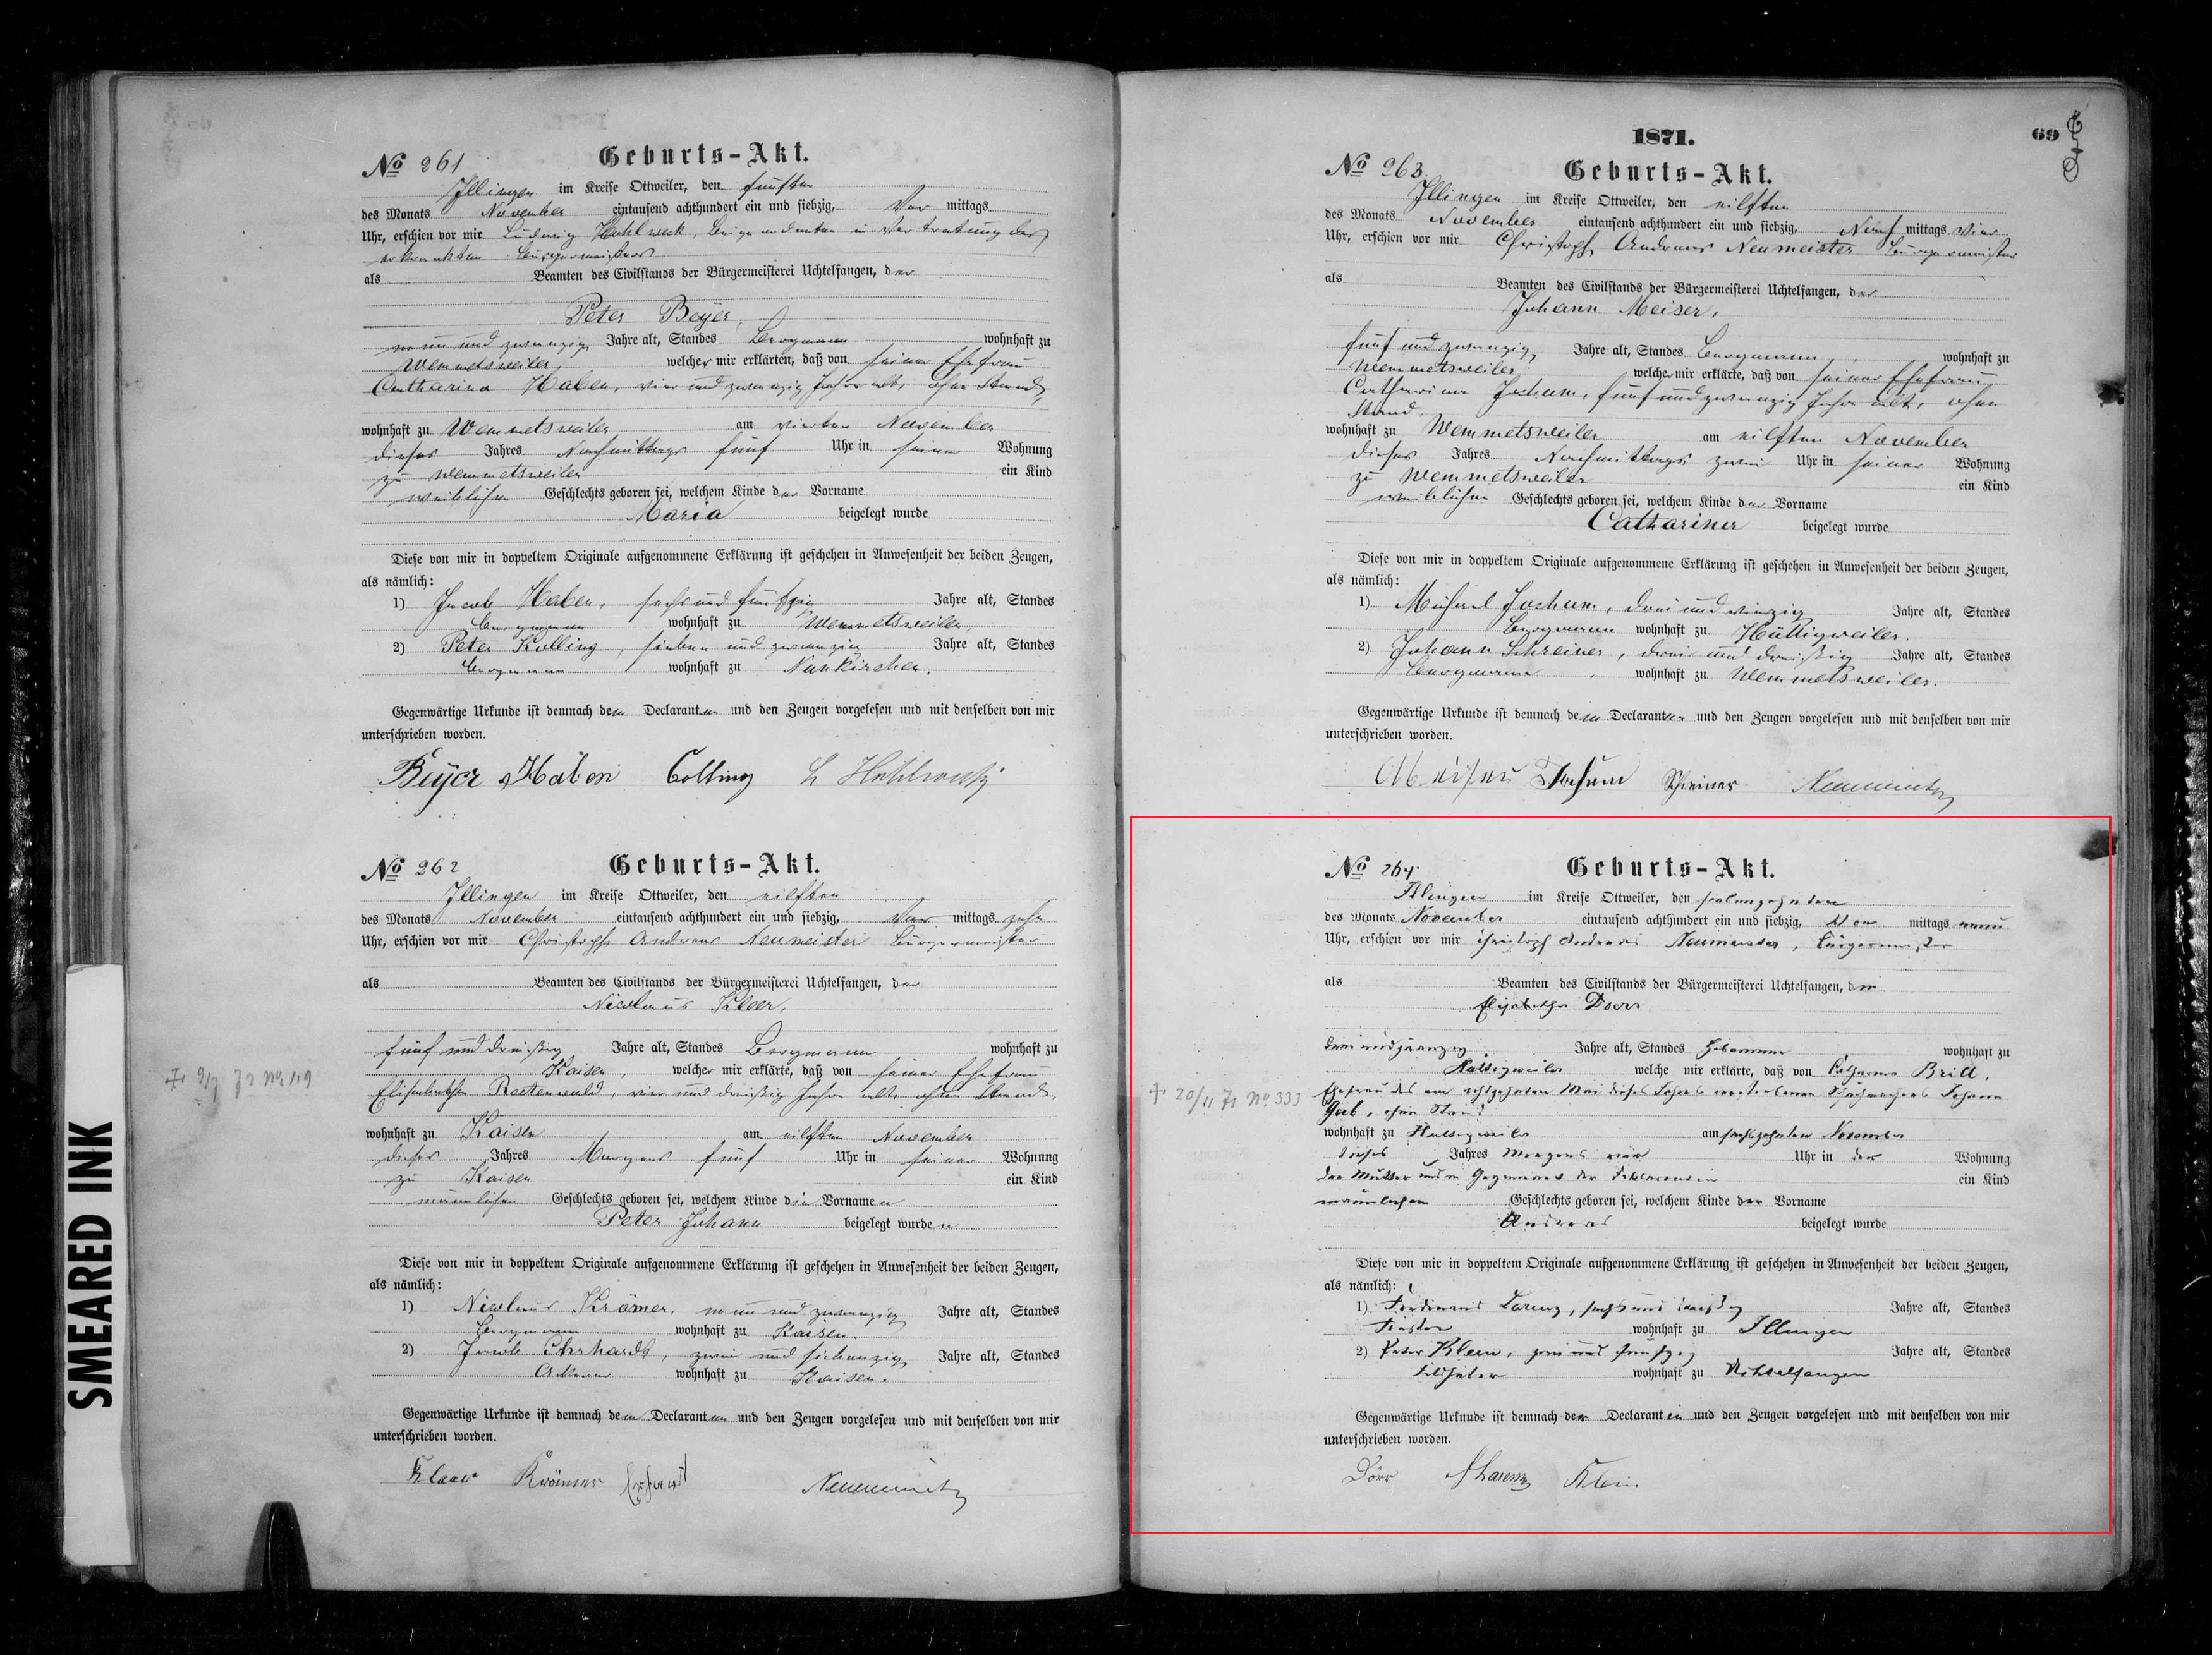 No 261 Geburts-Akt.
Illingen im Kreise Ottweiler, den fünften
des Monats November eintausend achthundert ein und siebzig, Vor mittags
Uhr, erschien vor mir Ludwig Beigeordneten in Vertretung des
Bürgermeisters
als Beamten des Civilstands der Bürgermeisterei Uchtelfangen, der
Peter Beyer,
neun und zwanzig Jahre alt, Standes Bergmann wohnhaft zu
Wemmetsweiler, welcher mir erklärten, daß von seiner Ehefrau
Catharina Haben, vier und zwanzig Jahre alt, ohne Stand,
wohnhaft zu Wemmetsweiler am vierten November
dieses Jahres Nachmittags fünf Uhr in seiner Wohnung
zu Wemmetsweiler ein Kind
weiblichen Geschlechts geboren sei, welchem Kinde der Vorname
Maria beigelegt wurde
Diese von mir in doppeltem Originale aufgenommene Erklärung ist geschehen in Anwesenheit der beiden Zeugen,
als nämlich:
1) Jacob Haben, sechs und fünfzig Jahre alt, Standes
Bergmann wohnhaft zu Wemmetsweiler,
2) Peter Kolling, sieben und zwanzig Jahre alt, Standes
Bergmann wohnhaft zu Nunkirchen.
Gegenwärtige Urkunde ist demnach dem Declaranten und den Zeugen vorgelesen und mit denselben von mir
unterschrieben worden.
Beyer Haben Colling
No 262 Geburts-Akt.
Illingen im Kreise Ottweiler, den eilften
des Monats November eintausend achthundert ein und siebzig, Vor mittags zehn
Uhr, erschien vor mir Christoph Andreas Neumeister Bürgermeister
als Beamten des Civilstands der Bürgermeisterei Uchtelfangen, der
Nicolaus Kleer,
fünf und dreißig Jahre alt, Standes Bergmann wohnhaft zu
Kaisen, welcher mir erklärte, daß von seiner Ehefrau
+ 9/7 72 No 119
Elisabetha Rectenwald, vier und dreißig Jahre alt, ohne Stand,
wohnhaft zu Kaisen am eilften November
dieses Jahres Morgens fünf Uhr in seiner Wohnung
zu Kaisen ein Kind
männlichen Geschlechts geboren sei, welchem Kinde die Vornamen
Peter Johann beigelegt wurden
Diese von mir in doppeltem Originale aufgenommene Erklärung ist geschehen in Anwesenheit der beiden Zeugen,
als nämlich:
1) Nicolaus Krämer, neun und zwanzig Jahre alt, Standes
Bergmann wohnhaft zu Kaisen.
2) Jacob Ehrhardt, zwei und siebenzig Jahre alt, Standes
Ackerer wohnhaft zu Kaisen.
Gegenwärtige Urkunde ist demnach dem Declaranten und den Zeugen vorgelesen und mit denselben von mir
unterschrieben worden.
Kleer Krämer Neumeister
SMEARED INK
1871. 69
No 263. Geburts-Akt.
Illingen im Kreise Ottweiler, den eilften
des Monats November eintausend achthundert ein und siebzig, Nach mittags vier
Uhr, erschien vor mir Christoph Andreas Neumeister Bürgermeister
als Beamten des Civilstands der Bürgermeisterei Uchtelfangen, der
Johann Meiser,
fünf und zwanzig Jahre alt, Standes Bergmann wohnhaft zu
Wemmetsweiler welcher mir erklärte, daß von seiner Ehefrau
Catharina Jochum, fünf und zwanzig Jahre alt, ohne
Stand,
wohnhaft zu Wemmetsweiler am eilften November
dieses Jahres Nachmittags zwei Uhr in seiner Wohnung
zu Wemmetsweiler ein Kind
weiblichen Geschlechts geboren sei, welchem Kinde der Vorname
Catharina beigelegt wurde
Diese von mir in doppeltem Originale aufgenommene Erklärung ist geschehen in Anwesenheit der beiden Zeugen,
als nämlich:
1) Michael Jochum, drei und vierzig Jahre alt, Standes
Bergmann wohnhaft zu Hüttigweiler.
2) Johann Schreiner, drei und dreißig Jahre alt, Standes
Bergmann wohnhaft zu Wemmetsweiler.
Gegenwärtige Urkunde ist demnach dem Declaranten und den Zeugen vorgelesen und mit denselben von mir
unterschrieben worden.
Meiser Jochum Schreiner Neumeister
No 264 Geburts-Akt.
Illingen im Kreise Ottweiler, den siebenzehnten
des Monats November eintausend achthundert ein und siebzig, Vor mittags neun
Uhr, erschien vor mir Christoph Andreas Neumeister, Bürgermeister
als Beamten des Civilstands der Bürgermeisterei Uchtelfangen, die
Elisabetha Doerr
drei und zwanzig Jahre alt, Standes Hebamme wohnhaft zu
Hüttigweiler welche mir erklärte, daß von Catharina Brill,
+ 20/11 71 No 333
Ehefrau des am achtzehnten Mai dieses Jahres verstorbenen Schuhmachers Johann
Geib, ohne Stand
wohnhaft zu Hüttigweiler am sechszehnten November
dieses Jahres Morgens vier Uhr in der Wohnung
der Mutter und in Gegenwart der Declarantin ein Kind
männlichen Geschlechts geboren sei, welchem Kinde der Vorname
Andreas beigelegt wurde
Diese von mir in doppeltem Originale aufgenommene Erklärung ist geschehen in Anwesenheit der beiden Zeugen,
als nämlich:
1) Ferdinand Lorenz, sechs und Jahre alt, Standes
wohnhaft zu Illingen
2) Peter Klein, zwei und fünfzig Jahre alt, Standes
Feldhüter wohnhaft zu Uchtelfangen
Gegenwärtige Urkunde ist demnach der Declarantin und den Zeugen vorgelesen und mit denselben von mir
unterschrieben worden.
Dörr Lorenz Klein